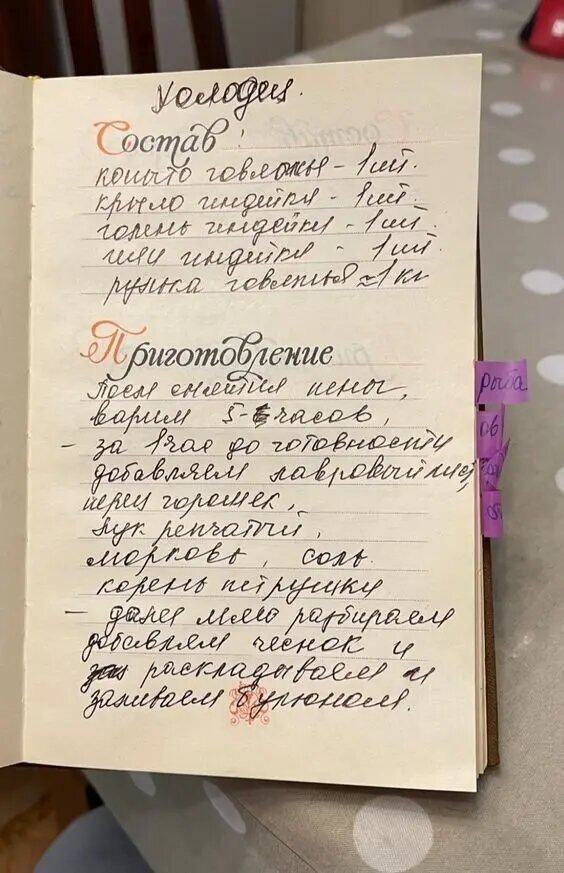 Холодец.
Состав:
копыто говяжье - 1 шт.
крыло индейки - 1 шт.
голень индейки - 1 шт
шеи индейки - 1 шт
рулька говяжья ≈ 1 кг
Приготовление
После снятия пены,
варим 5-6 часов,
- за 1 час до готовности
добавляем лавровый лист,
перец горошек,
лук репчатый,
морковь, соль
корень петрушки
- далее мясо разбираем
добавляем чеснок и
раскладываем и
заливаем бульоном.
рыба
ов